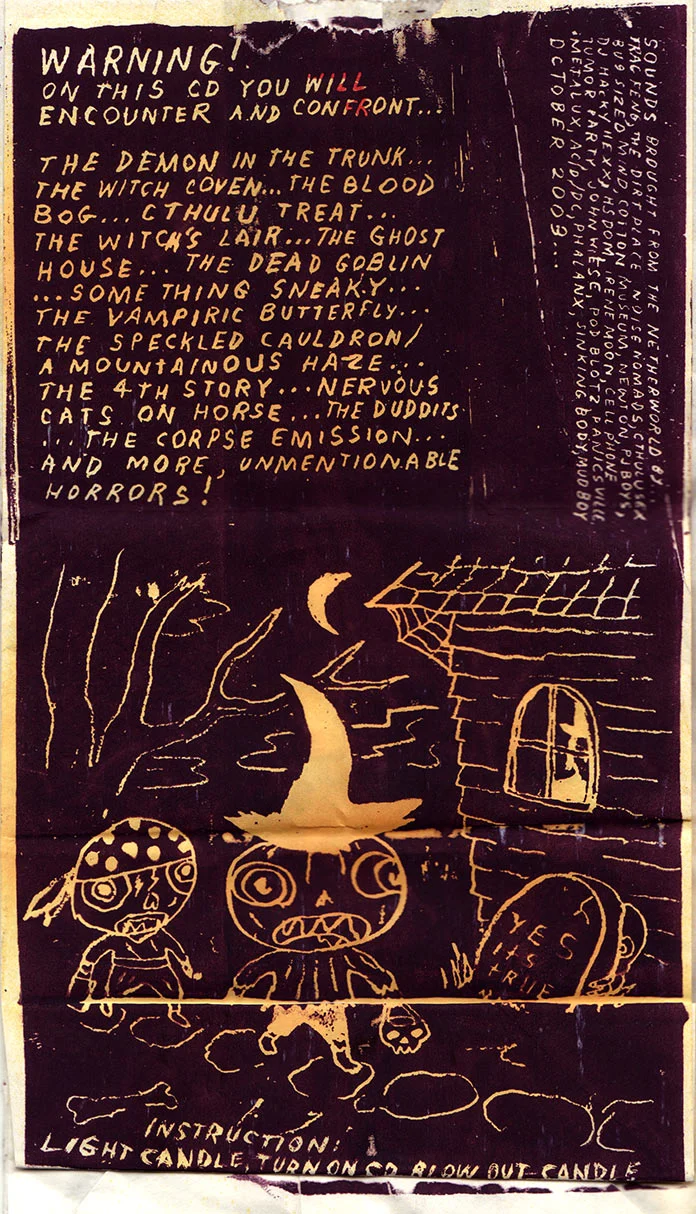 WARNING!
ON THIS CD YOU WILL
ENCOUNTER AND CONFRONT...
THE DEMON IN THE TRUNK...
THE WITCH COVEN... THE BLOOD
BOG... CTHULU TREAT...
THE WITCH'S LAIR... THE GHOST
HOUSE... THE DEAD GOBLIN
...SOME THING SNEAKY...
THE VAMPIRIC BUTTERFLY...
THE SPECKLED CAULDRON/
A MOUNTAINOUS HAZE...
THE 4TH STORY... NERVOUS
CATS ON HORSE... THE DUDDITS
...THE CORPSE EMISSION...
AND MORE, UNMENTIONABLE
HORRORS!
SOUNDS BROUGHT FROM THE NETHERWORLD BY...
THE DIRT PLACE NOISE NOMADS, CTHULUSEX
BUG SIZED MIND, COTTON MUSEUM, NEWTON, PJ BOYS,
DJ HALKY HEXX, HSDOM, IRENE MOON, CELL PHONE
TUMOR PARTY, JOHN WIESE, POD BLOTZ PANICSVILLE
METALUX, AC/D/DC, PHALANX, SINKING BODY, MUD BOY
OCTOBER 2003...
YES
ITS
TRUE
INSTRUCTION:
LIGHT CANDLE, TURN ON CD BLOW OUT CANDLE